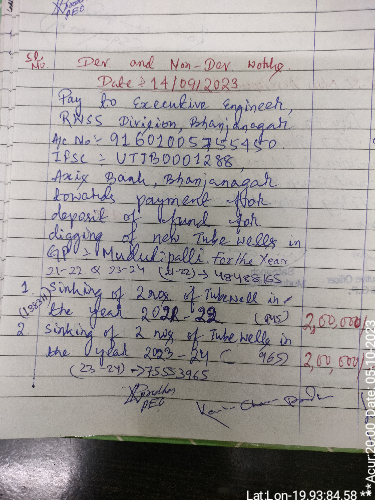 PEO
Sl. No.
Dev and Non-Dev
Date: 14/09/2023
Pay to Executive Engineer,
RWSS Division, Bhanjanagar
A/c No:- 916010057 55450
IFSC:- UTIB0001288
Axis Bank, Bhanjanagar
towards payment for
deposit of fund for
digging of new Tube wells in
GP:- Mudulipalli For the Year
21-22 & 23-24 (21-22) → 48488165
1 Sinking of 2 nos of Tubewell in
the year 2021-22 2,00,000/
2 Sinking of 2 nos of Tube wells in
the year 2023-24 ( 965) 2,00,000/
(23-24) → 75553965
PEO
Lat:Lon-19.93:84.58
**Acur:20.00 Date: 05-10-2023